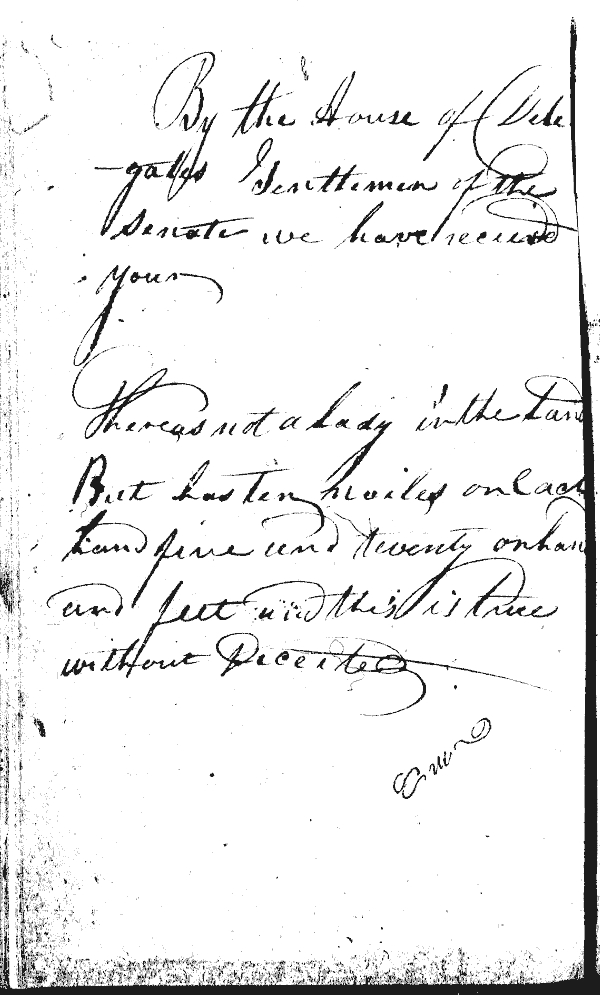 By the House of Dele
-gates Gentlemen of the
Senate we have received
your
Thereas not a Lady in the Land
But has ten nailes on Each
hand five and twenty on han
and feet and this is true
without Deceite